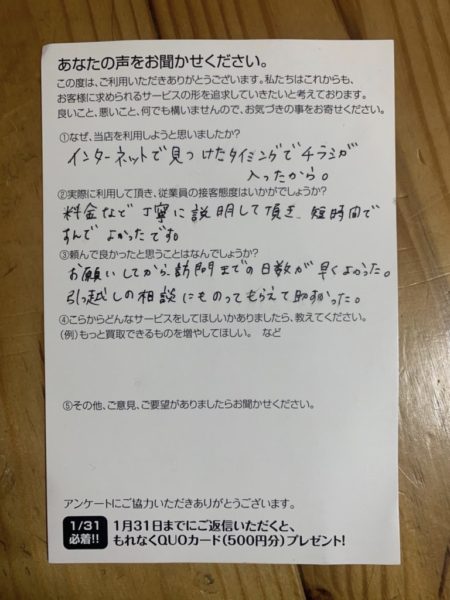 あなたの声をお聞かせください。
この度は、ご利用いただきありがとうございます。私たちはこれからも、
お客様に求められるサービスの形を追求していきたいと考えております。
良いこと、悪いこと、何でも構いませんので、お気づきの事をお寄せください。
①なぜ、当店を利用しようと思いましたか?
インターネットで見つけたタイミングでチラシが
入ったから。
②実際に利用して頂き、従業員の接客態度はいかがでしょうか?
料金など丁寧に説明して頂き、短時間で
すんでよかったです。
③頼んで良かったと思うことはなんでしょうか?
お願いしてから訪問までの日数が早くよかった。
引っ越しの相談にものってもらえて助かった。
④こらからどんなサービスをしてほしいかありましたら、教えてください。
(例)もっと買取できるものを増やしてほしい。 など
⑤その他、ご意見、ご要望がありましたらお聞かせください。
アンケートにご協力いただきありがとうございます。
1/31
必着!!
1月31日までにご返信いただくと、
もれなくQUOカード(500円分)プレゼント!